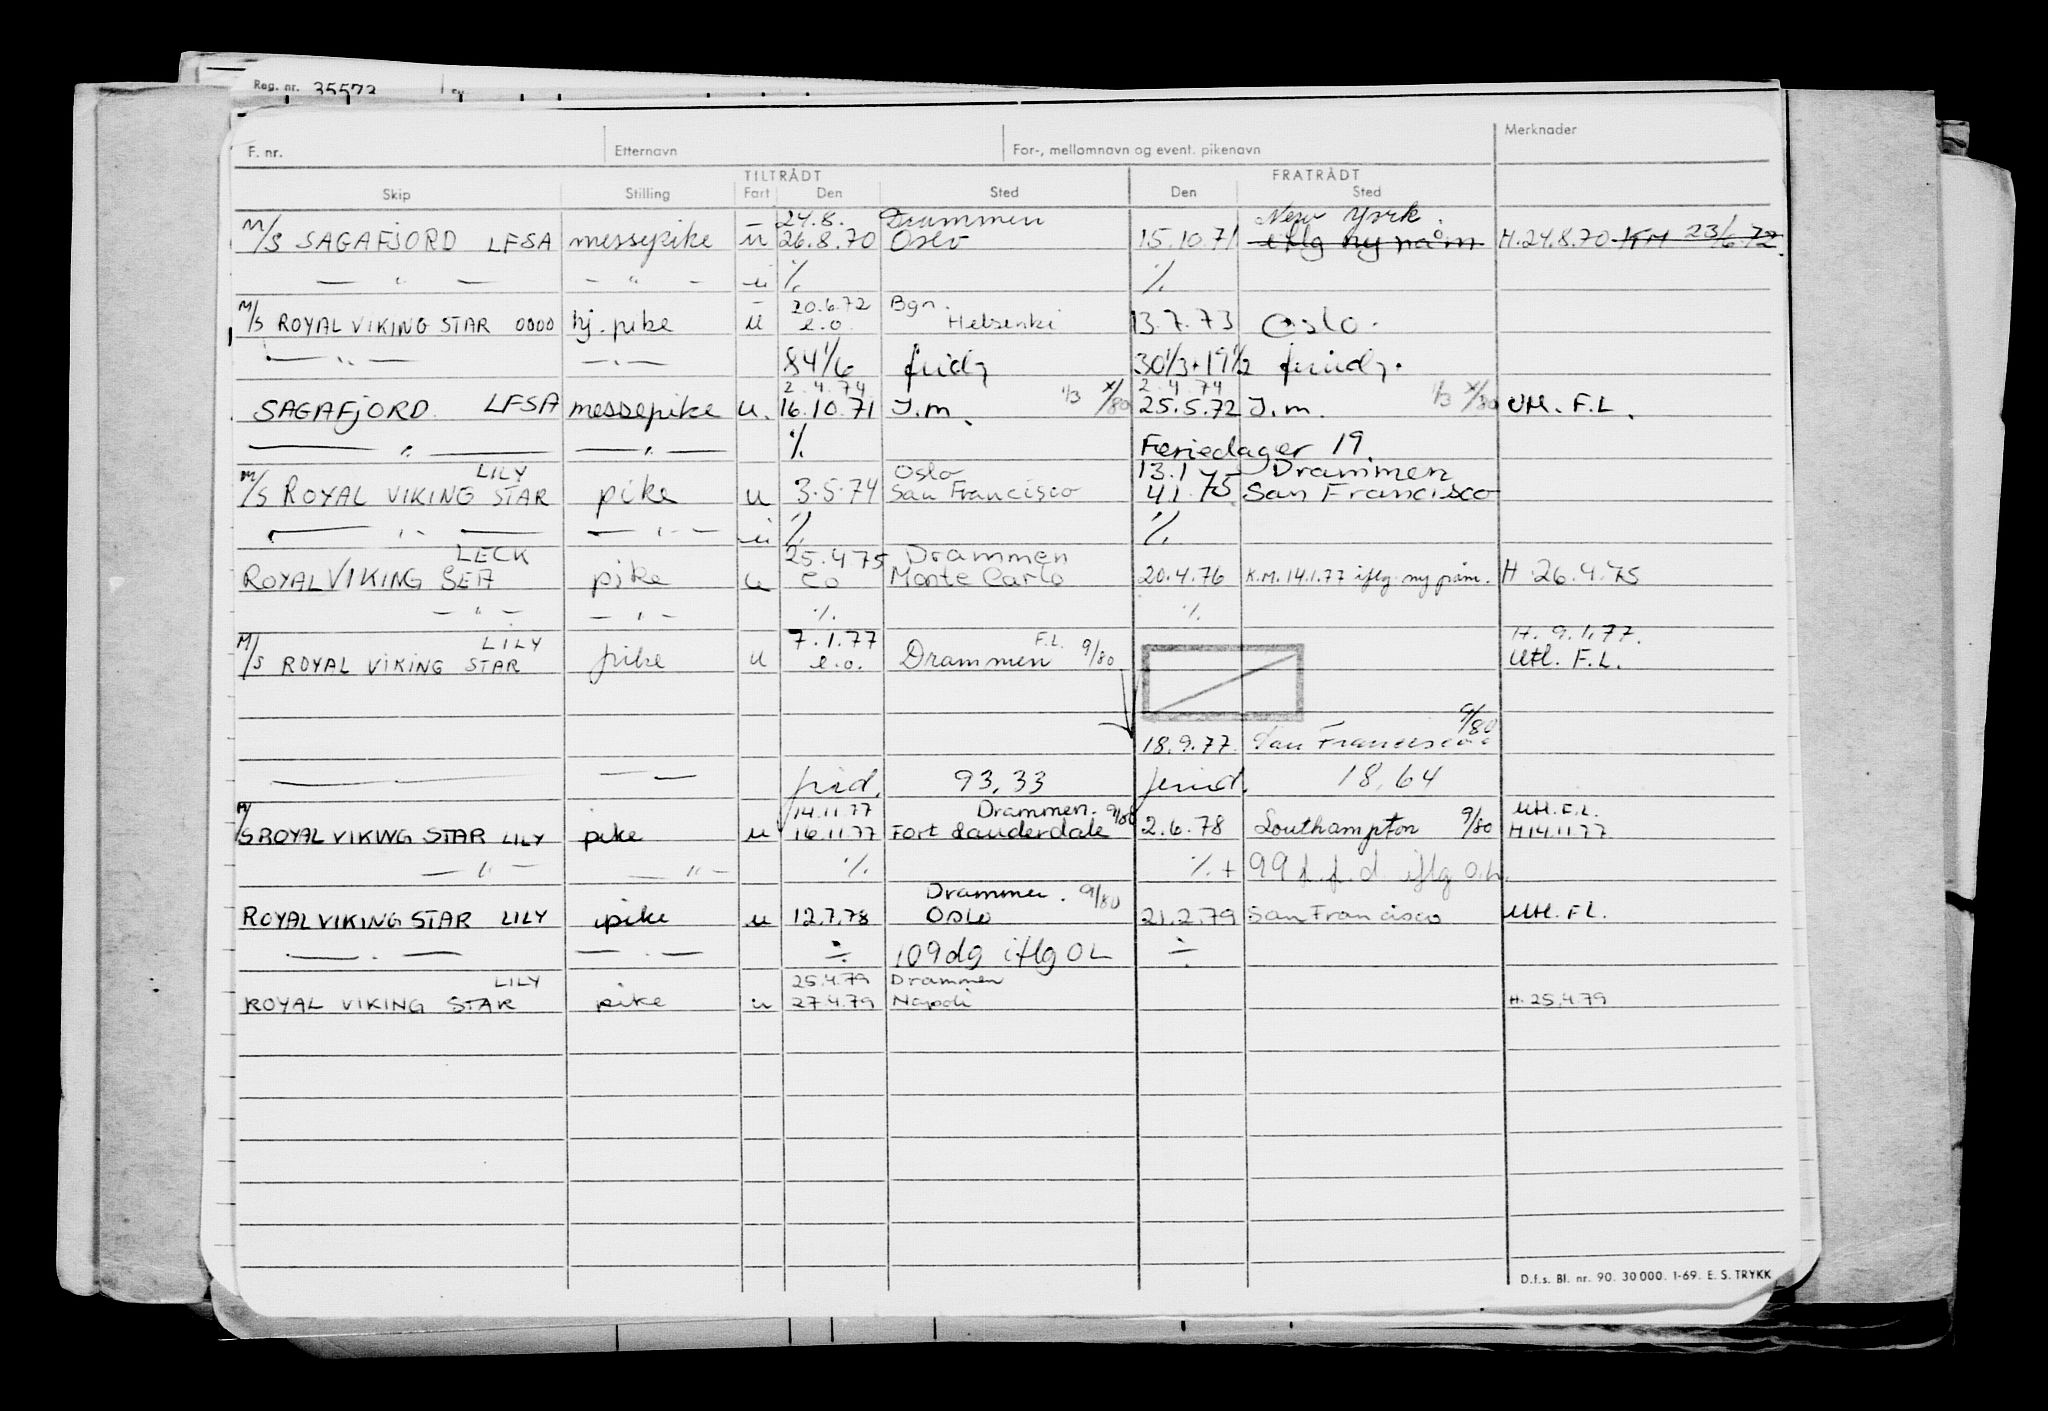 Reg. nr. 35573
Merknader
F. nr. Etternavn For-, mellomnavn og event. pikenavn
TILTRÅDT FRATRÅDT
Skip Stilling Fart Den Sted Den Sted
24.8. Drammen New York.
M/S SAGAFJORD LFSA messepike u 26.8.70 Oslo 15.10.71 iflg ny påm H.24.8.70 KM 23/6.72.
— " — — " — u ·/. ·/.
20.6.72 Bgn.
M/S ROYAL VIKING STAR 0000 hj. pike u e.o. Helsenki 13.7.73 Oslo.
— " — — " — 84 1/6 frid, 30 1/3 + 19 1/2 friid,.
2.4.74 2.4.74
SAGAFJORD. LFSA messepike u. 16.10.71 J.m. 1/3 X/80 25.5.72 J.m. 1/3 X/80 Utl. F.L.
— " — — " — ·/. Feriedager 19.
LILY Oslo 13.1 Drammen
M/S ROYAL VIKING STAR pike u 3.5.74 San Francisco 4.1.75 San Francisco
— " — — " — u ·/. ·/.
LECK 25.4.75 Drammen
ROYAL VIKING SEA pike u eo Monte Carlo 20.4.76 K.M. 14.1.77 iflg. ny påm. H 26.4.75
— " — — " — ·/. ·/.
LILY 7.1.77 F.L. H. 9.1.77.
M/S ROYAL VIKING STAR pike u e.o. Drammen 9/80 Utl. F.L.
9/80
18.9.77. San Francisco
— — — frid. 93,33 friid. 18,64
14.11.77 Drammen. 9/80 Utl. F.L.
M/S ROYAL VIKING STAR LILY pike u 16.11.77 Fort Lauderdale 2.6.78 Southampton 9/80 H 14.11.77
— " — — " — ·/. ·/. + 99 f.f.d iflg o.l.
Drammen. 9/80
ROYAL VIKING STAR LILY pike u 12.7.78 Oslo 21.2.79 San Francisco Utl. F.L.
— . — — . — ÷ 109 dg iflg OL ÷
LILY 25.4.79 Drammen
ROYAL VIKING STAR pike u 27.4.79 Napoli H. 25.4.79
D.f.s. Bl. nr. 90. 30 000. 1-69. E. S. TRYKK